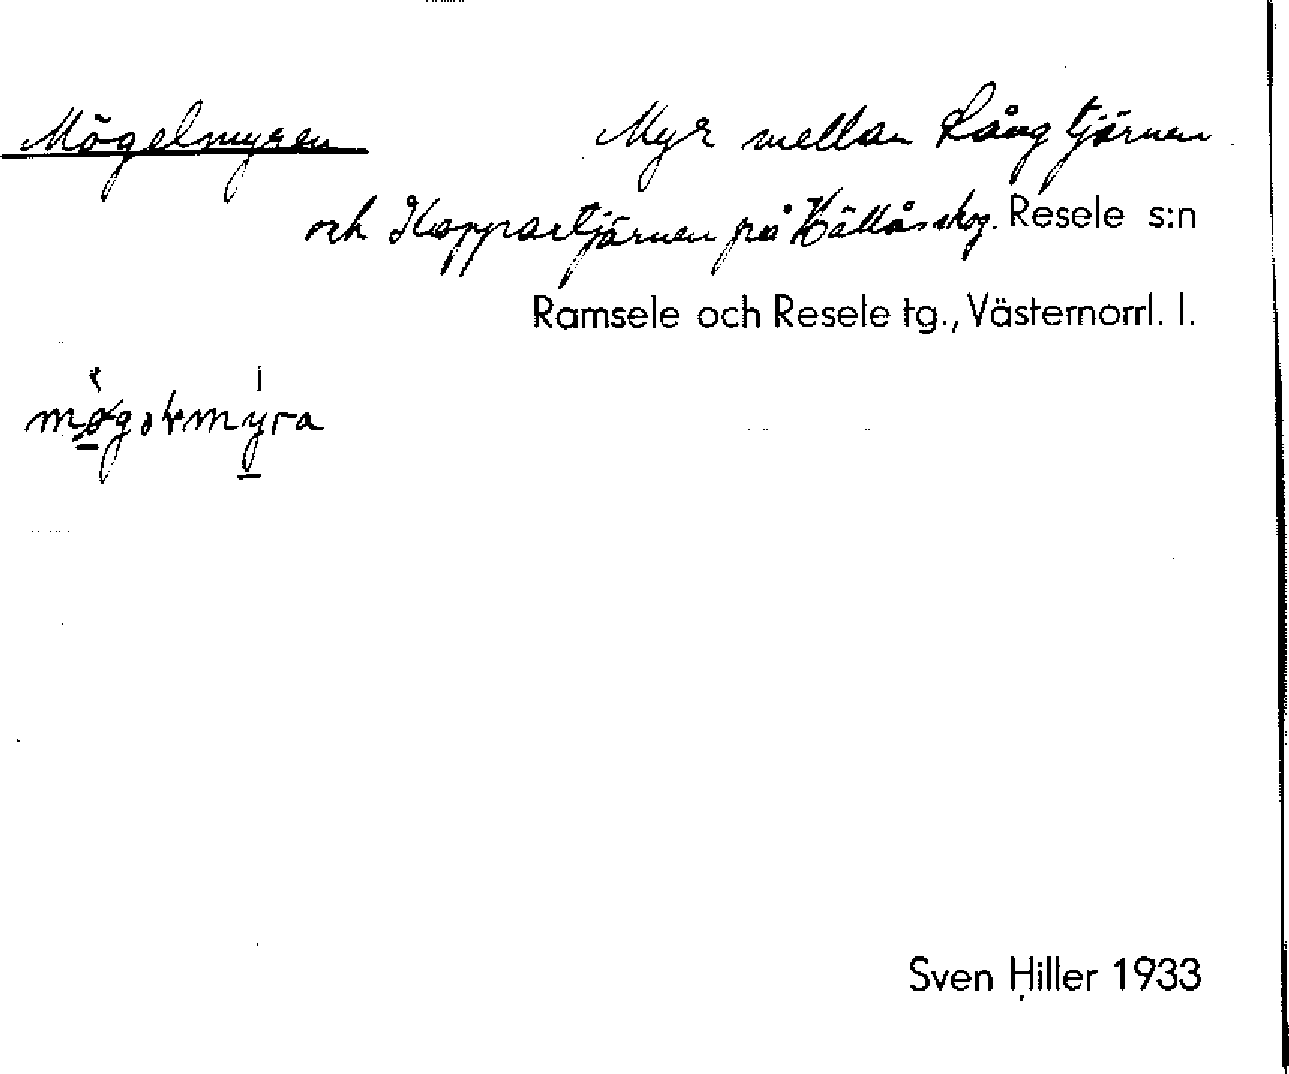 Mögelmyren Myr mellan Långtjärnen
och Koppartjärnen på Hällåsskog. Resele s:n
Ramsele och Resele tg., Västernorrl. l.
Sven Hiller 1933